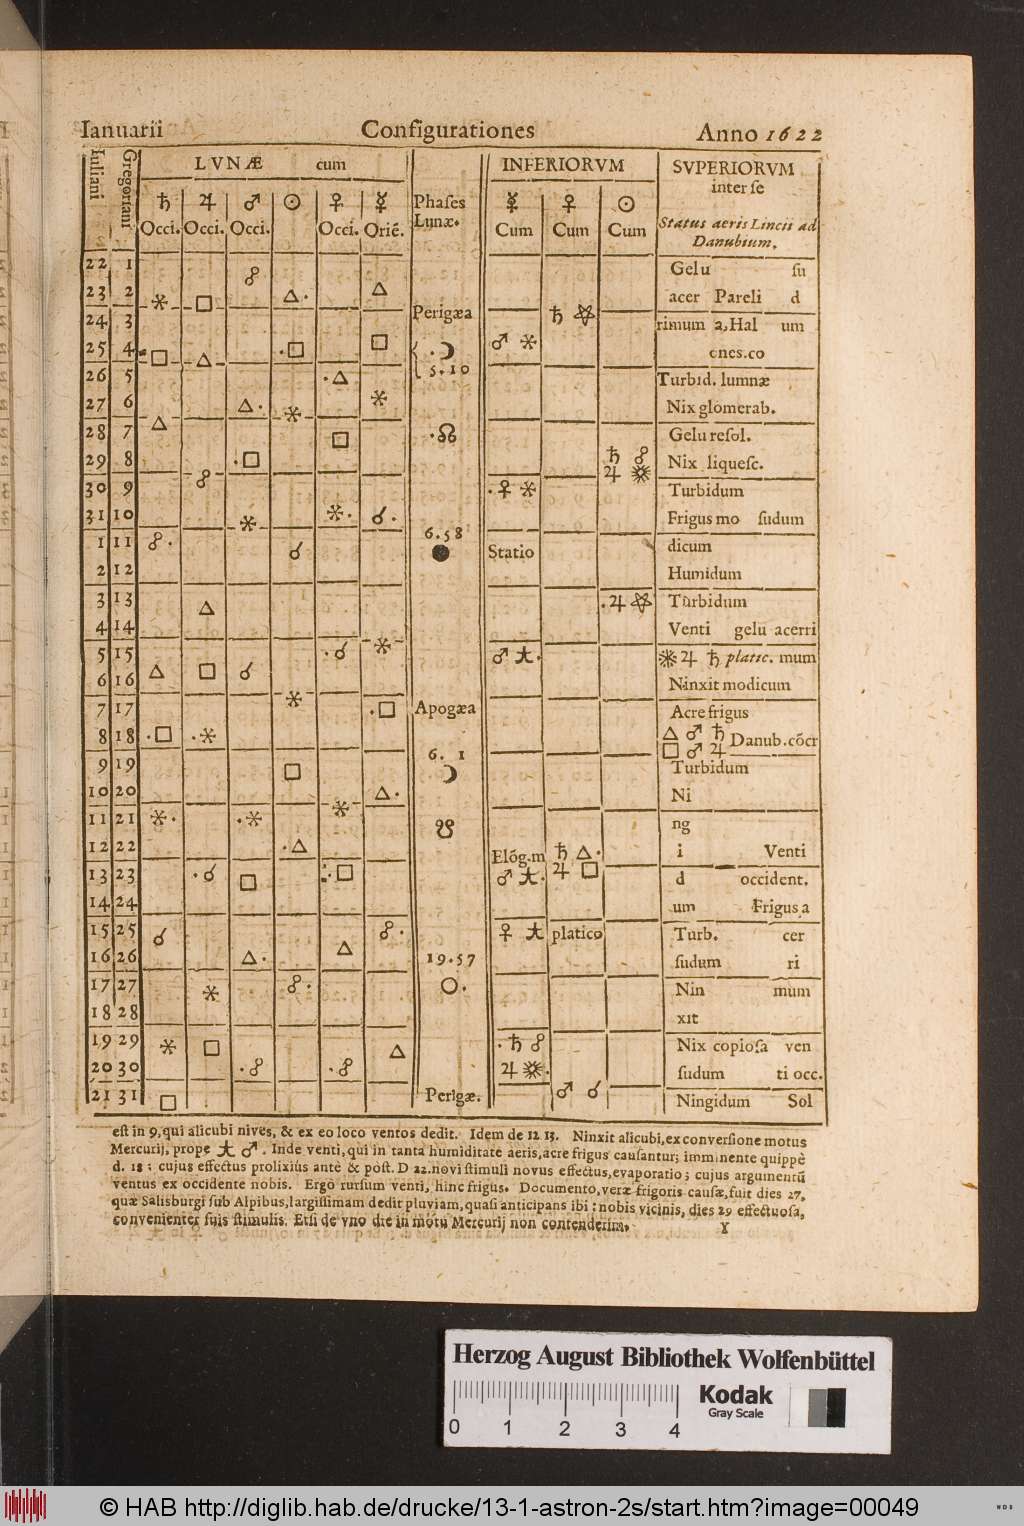 Ianuarii Configurationes Anno 1622
Iuliani Gregoriani LVNÆ cum Phases Lunæ. INFERIORVM SVPERIORVM
inter se
♄ ♃ ♂ ☉ ♀ ☿ ☿ ♀ ☉
Occi. Occi. Occi. Occi. Oriē. Cum Cum Cum Status aeris Lincii ad
Danubium.
22 1 ☍ Gelu su
23 2 ⚹ □ △. △ acer Pareli d
24 3 Perigæa ♄ rimum a, Hal um
25 4 □ △ .□ □ .☽ ♂ ⚹ ones.co
26 5 .△ 5.10 Turbid. lumnæ
27 6 △. ⚹ ⚹ Nix glomerab.
28 7 △ □ .☊ Gelu resol.
29 8 ☍ .□ ♄ ☍ ♃ Nix liquesc.
30 9 .♀ ⚹ Turbidum
31 10 ⚹ ⚹. ☌. Frigus mo sudum
1 11 ☍. ☌ 6.58 ● Statio dicum
2 12 Humidum
3 13 △ .♃ Turbidum
4 14 Venti gelu acerri
5 15 .☌ ⚹ ♂ ♃ ♄ platic. mum
6 16 △ □ ☌ Ninxit modicum
7 17 ⚹ .□ Apogæa Acre frigus
8 18 .□ .⚹ △ ♂ ♄ □ ♂ ♃ Danub.cõcr
9 19 □ 6. 1 ☽ Turbidum
10 20 △. Ni
11 21 ⚹. .⚹ ⚹ ☋ ng
12 22 .△ Elõg.m ♄ △. i Venti
13 23 .☌ □ □ ♂ ♃ □ d occident.
14 24 um Frigus a
15 25 ☌ ☍. ♀ platico Turb. cer
16 26 △. △ 19.57 sudum ri
17 27 ⚹ ☍. ○. Nin mum
18 28 xit
19 29 ⚹ □ △ .♄ ☍ Nix copiosa ven
20 30 .☍ .☍ ♃ sudum ti occ.
21 31 □ Perigæ. ♂ ☌ Ningidum Sol
est in 9, qui alicubi nives, & ex eo loco ventos dedit. Idem de 12 13. Ninxit alicubi, ex conversione motus
Mercurij, prope ♂. Inde venti, qui in tanta humiditate aeris, acre frigus causantur; imminente quippè
d. 18: cujus effectus prolixius antè & post. D 22. novi stimuli novus effectus, evaporatio; cujus argumentū
ventus ex occidente nobis. Ergò rursum venti, hinc frigus. Documento, veræ frigoris causæ, fuit dies 27,
quæ Salisburgi sub Alpibus, largissimam dedit pluviam, quasi anticipans ibi: nobis vicinis, dies 29 effectuosa,
convenienter suis stimulis. Etsi de vno die in motu Mercurij non contenderim.
Y
Herzog August Bibliothek Wolfenbüttel
Kodak
Gray Scale
0 1 2 3 4
© HAB http://diglib.hab.de/drucke/13-1-astron-2s/start.htm?image=00049